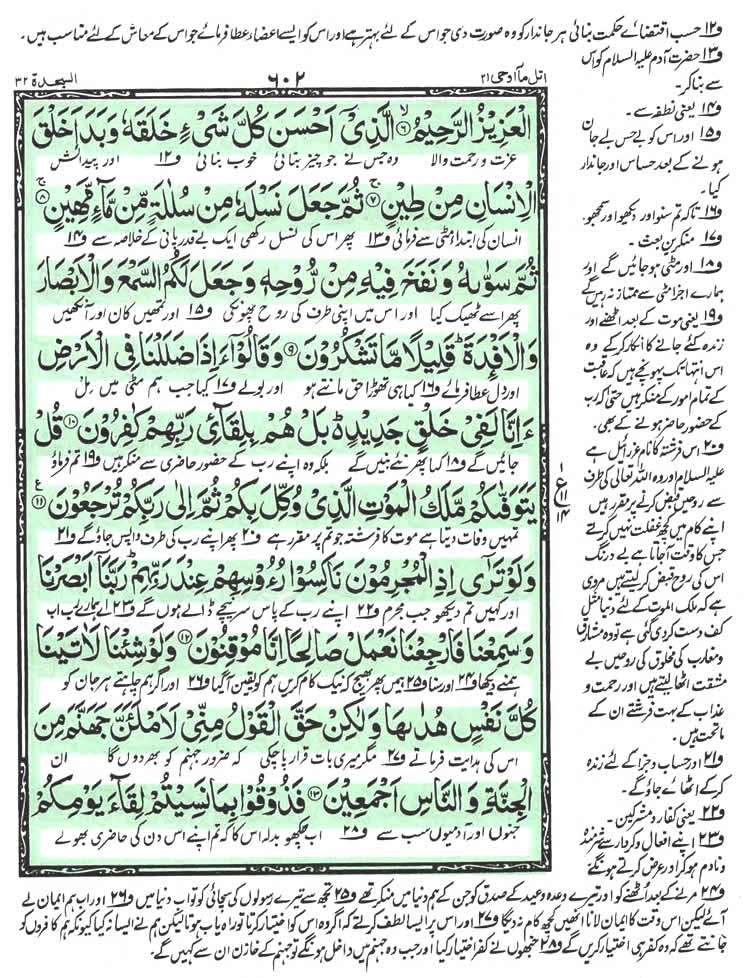 و۱۲ حسب اقتضائے حکمت بنائی ہر جاندار کو وہ صورت دی جو اس کے لئے بہتر ہے اور اس کو ایسے اعضاء عطا فرمائے جو اس کے معاش کے لئے مناسب ہیں۔
و۱۳ حضرت آدم علیہ السلام کو اس
سے بنا کر۔
و۱۴ یعنی نطفہ سے۔
و۱۵ اور اس کو بے حس بے جان
ہونے کے بعد حساس اور جاندار
کیا۔
و۱۶ تاکہ تم سنو اور دیکھو اور سمجھو۔
و۱۷ منکرین بعث۔
و۱۸ اور مٹی ہو جائیں گے اور
ہمارے اجزا مٹی سے ممتاز نہ رہیں گے
و۱۹ یعنی موت کے بعد اٹھنے اور
زندہ کئے جانے کا انکار کرکے وہ
اس انتہا تک پہونچے ہیں کہ عاقبت
کے تمام امور کے منکر ہیں حتیٰ کہ رب
کے حضور حاضر ہونے کے بھی۔
و۲۰ اس فرشتہ کا نام عزرائیل ہے
علیہ السلام اور وہ اللہ تعالیٰ کی طرف
سے روحیں قبض کرنے پر مقرر ہیں
اپنے کام میں کچھ غفلت نہیں کرتے
جس کا وقت آجاتا ہے بے درنگ
اس کی روح قبض کر لیتے ہیں مروی
ہے کہ ملک الموت کے لئے دنیا مثل
کف دست کر دی گئی ہے تو وہ مشارق
و مغارب کی مخلوق کی روحیں بے
مشقت اٹھا لیتے ہیں اور رحمت و
عذاب کے بہت فرشتے ان کے
ماتحت ہیں۔
و۲۱ اور حساب و جزا کے لئے زندہ
کرکے اٹھائے جاؤ گے۔
و۲۲ یعنی کفار و مشرکین۔
و۲۳ اپنے افعال و کردار سے شرمندہ
و نادم ہو کر اور عرض کرتے ہونگے
اتل ما اوحی ۲۱
۶۰۲
السجدة ۳۲
الْعَزِيْزُ الرَّحِيْمُ ۙ۶ الَّذِيْۤ اَحْسَنَ كُلَّ شَيْءٍ خَلَقَهٗ وَ بَدَاَ خَلْقَ
عزت و رحمت والا وہ جس نے جو چیز بنائی خوب بنائی و۱۲ اور پیدائش
الْاِنْسَانِ مِنْ طِيْنٍ ۚ۷ ثُمَّ جَعَلَ نَسْلَهٗ مِنْ سُلٰلَةٍ مِّنْ مَّآءٍ مَّهِيْنٍ ۚ۸
انسان کی ابتدا مٹی سے فرمائی و۱۳ پھر اس کی نسل رکھی ایک بے قدر پانی کے خلاصہ سے و۱۴
ثُمَّ سَوّٰىهُ وَ نَفَخَ فِيْهِ مِنْ رُّوْحِهٖ وَ جَعَلَ لَكُمُ السَّمْعَ وَ الْاَبْصَارَ
پھر اسے ٹھیک کیا اور اس میں اپنی طرف کی روح پھونکی و۱۵ اور تمھیں کان اور آنکھیں
وَ الْاَفْـِٕدَةَ ؕ قَلِيْلًا مَّا تَشْكُرُوْنَ ۹ وَ قَالُوْۤا ءَاِذَا ضَلَلْنَا فِي الْاَرْضِ
اور دل عطا فرمائے و۱۶ کیا ہی تھوڑا حق مانتے ہو اور بولے و۱۷ کیا جب ہم مٹی میں مل
ءَاِنَّا لَفِيْ خَلْقٍ جَدِيْدٍ ۬ؕ بَلْ هُمْ بِلِقَآئِ رَبِّهِمْ كٰفِرُوْنَ ۱۰ قُلْ
جائیں گے و۱۸ کیا پھر نئے بنیں گے بلکہ وہ اپنے رب کے حضور حاضری سے منکر ہیں و۱۹ تم فرماؤ
يَتَوَفّٰىكُمْ مَّلَكُ الْمَوْتِ الَّذِيْ وُكِّلَ بِكُمْ ثُمَّ اِلٰى رَبِّكُمْ تُرْجَعُوْنَ ۱۱ ع
تمہیں وفات دیتا ہے موت کا فرشتہ جو تم پر مقرر ہے و۲۰ پھر اپنے رب کی طرف واپس جاؤ گے و۲۱
وَ لَوْ تَرٰۤى اِذِ الْمُجْرِمُوْنَ نَاكِسُوْا رُءُوْسِهِمْ عِنْدَ رَبِّهِمْ ؕ رَبَّنَاۤ اَبْصَرْنَا
اور کہیں تم دیکھو جب مجرم و۲۲ اپنے رب کے پاس سر نیچے ڈالے ہوں گے و۲۳ اے ہمارے رب اب
وَ سَمِعْنَا فَارْجِعْنَا نَعْمَلْ صَالِحًا اِنَّا مُوْقِنُوْنَ ۱۲ وَ لَوْ شِئْنَا لَاٰتَيْنَا
ہمنے دیکھا و۲۴ اور سنا و۲۵ ہمیں پھر بھیج کہ نیک کام کریں ہم کو یقین آگیا و۲۶ اور اگر ہم چاہتے ہر جان کو
كُلَّ نَفْسٍ هُدٰىهَا وَ لٰكِنْ حَقَّ الْقَوْلُ مِنِّيْ لَاَمْلَئَنَّ جَهَنَّمَ مِنَ
اس کی ہدایت فرماتے و۲۷ مگر میری بات قرار پاچکی کہ ضرور جہنم کو بھر دوں گا ان
الْجِنَّةِ وَ النَّاسِ اَجْمَعِيْنَ ۱۳ فَذُوْقُوْا بِمَا نَسِيْتُمْ لِقَآءَ يَوْمِكُمْ
جنوں اور آدمیوں سب سے و۲۸ اب چکھو بدلہ اس کا کہ تم اپنے اس دن کی حاضری بھولے
۱
ع
۱۱
۱۴
و۲۴ مرنے کے بعد اٹھنے کو اور تیرے وعدہ وعید کے صدق کو جن کے ہم دنیا میں منکر تھے و۲۵ تجھ سے تیرے رسولوں کی سچائی کو تو اب دنیا میں و۲۶ اور اب ہم ایمان لے
آئے لیکن اس وقت کا ایمان لانا انھیں کچھ کام نہ دیگا و۲۷ اور اس پر ایسا لطف کرتے کہ اگر وہ اس کو اختیار کرتا تو راہ یاب ہوتا لیکن ہم نے ایسا نہ کیا کیونکہ ہم کافروں کو
جانتے تھے کہ وہ کفر ہی اختیار کریں گے و۲۸ جنھوں نے کفر اختیار کیا اور جب وہ جہنم میں داخل ہونگے تو جہنم کے خازن ان سے کہیں گے۔